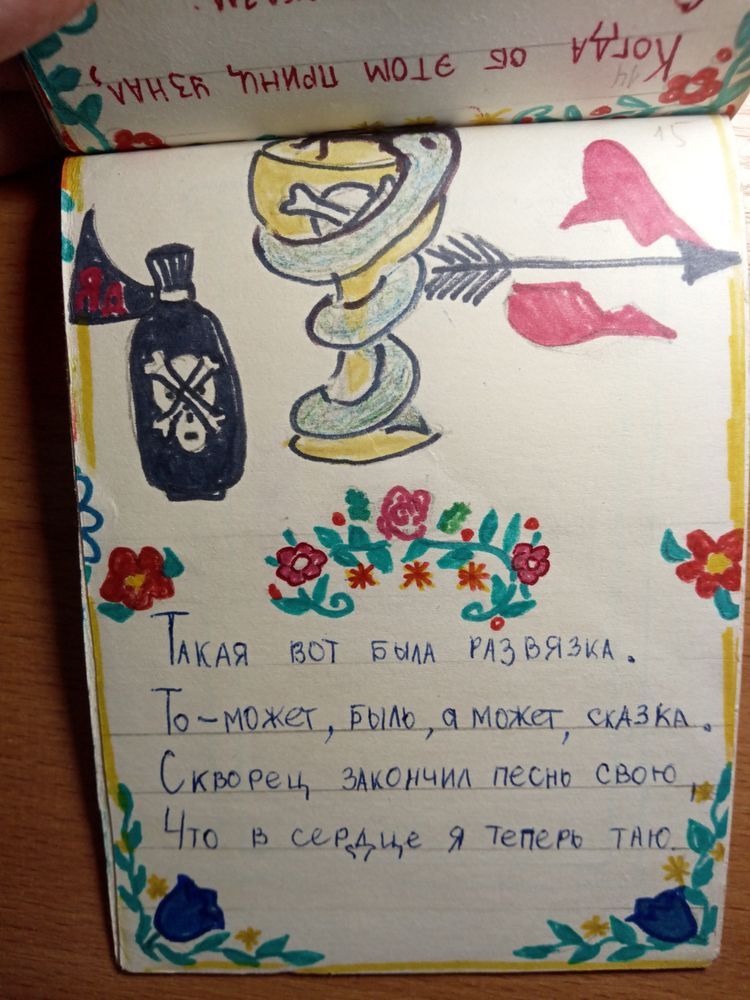 Когда об этом принц узнал,
14
15
ЯД
Такая вот была развязка.
То-может, быль, а может, сказка.
Скворец закончил песнь свою,
Что в сердце я теперь таю.